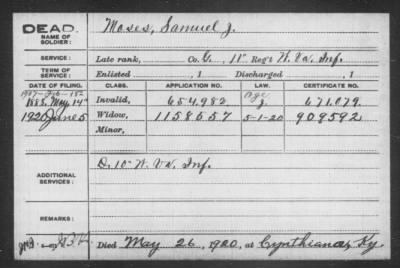 DEAD.
NAME OF SOLDIER: Moses, Samuel J.
SERVICE: Late rank, Co. G, 11" Reg't W. Va. Inf.
TERM OF SERVICE: Enlisted , 1 Discharged , 1
DATE OF FILING. CLASS. APPLICATION NO. LAW. CERTIFICATE NO.
1907-Feb-15
1888. May, 14" Invalid, 654,982 Age 671,079.
1920 June 5 Widow, 1158557 5-1-20 909592
Minor,
ADDITIONAL SERVICES: D. 10" W. Va. Inf.
REMARKS:
Died May 26, 1920, at Cynthiana, Ky.